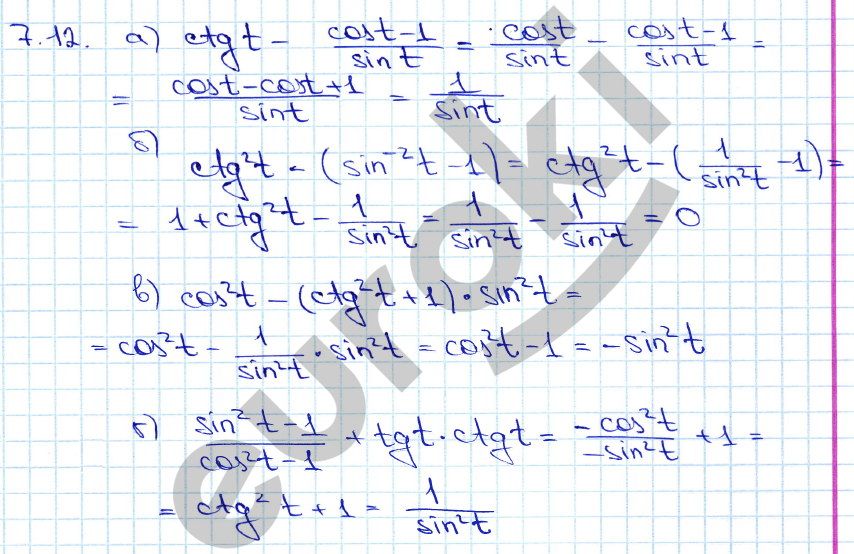 7.12. а) ctg t - (cos t - 1)/(sin t) = cos t/sin t - (cos t - 1)/(sin t) =
= (cos t - cos t + 1)/(sin t) = 1/sin t
б)
ctg²t - (sin⁻²t - 1) = ctg²t - (1/sin²t - 1) =
= 1 + ctg²t - 1/sin²t = 1/sin²t - 1/sin²t = 0
в) cos²t - (ctg²t + 1) · sin²t =
= cos²t - 1/sin²t · sin²t = cos²t - 1 = -sin²t
г) (sin²t - 1)/(cos²t - 1) + tg t · ctg t = (-cos²t)/(-sin²t) + 1 =
= ctg²t + 1 = 1/sin²t
euroki